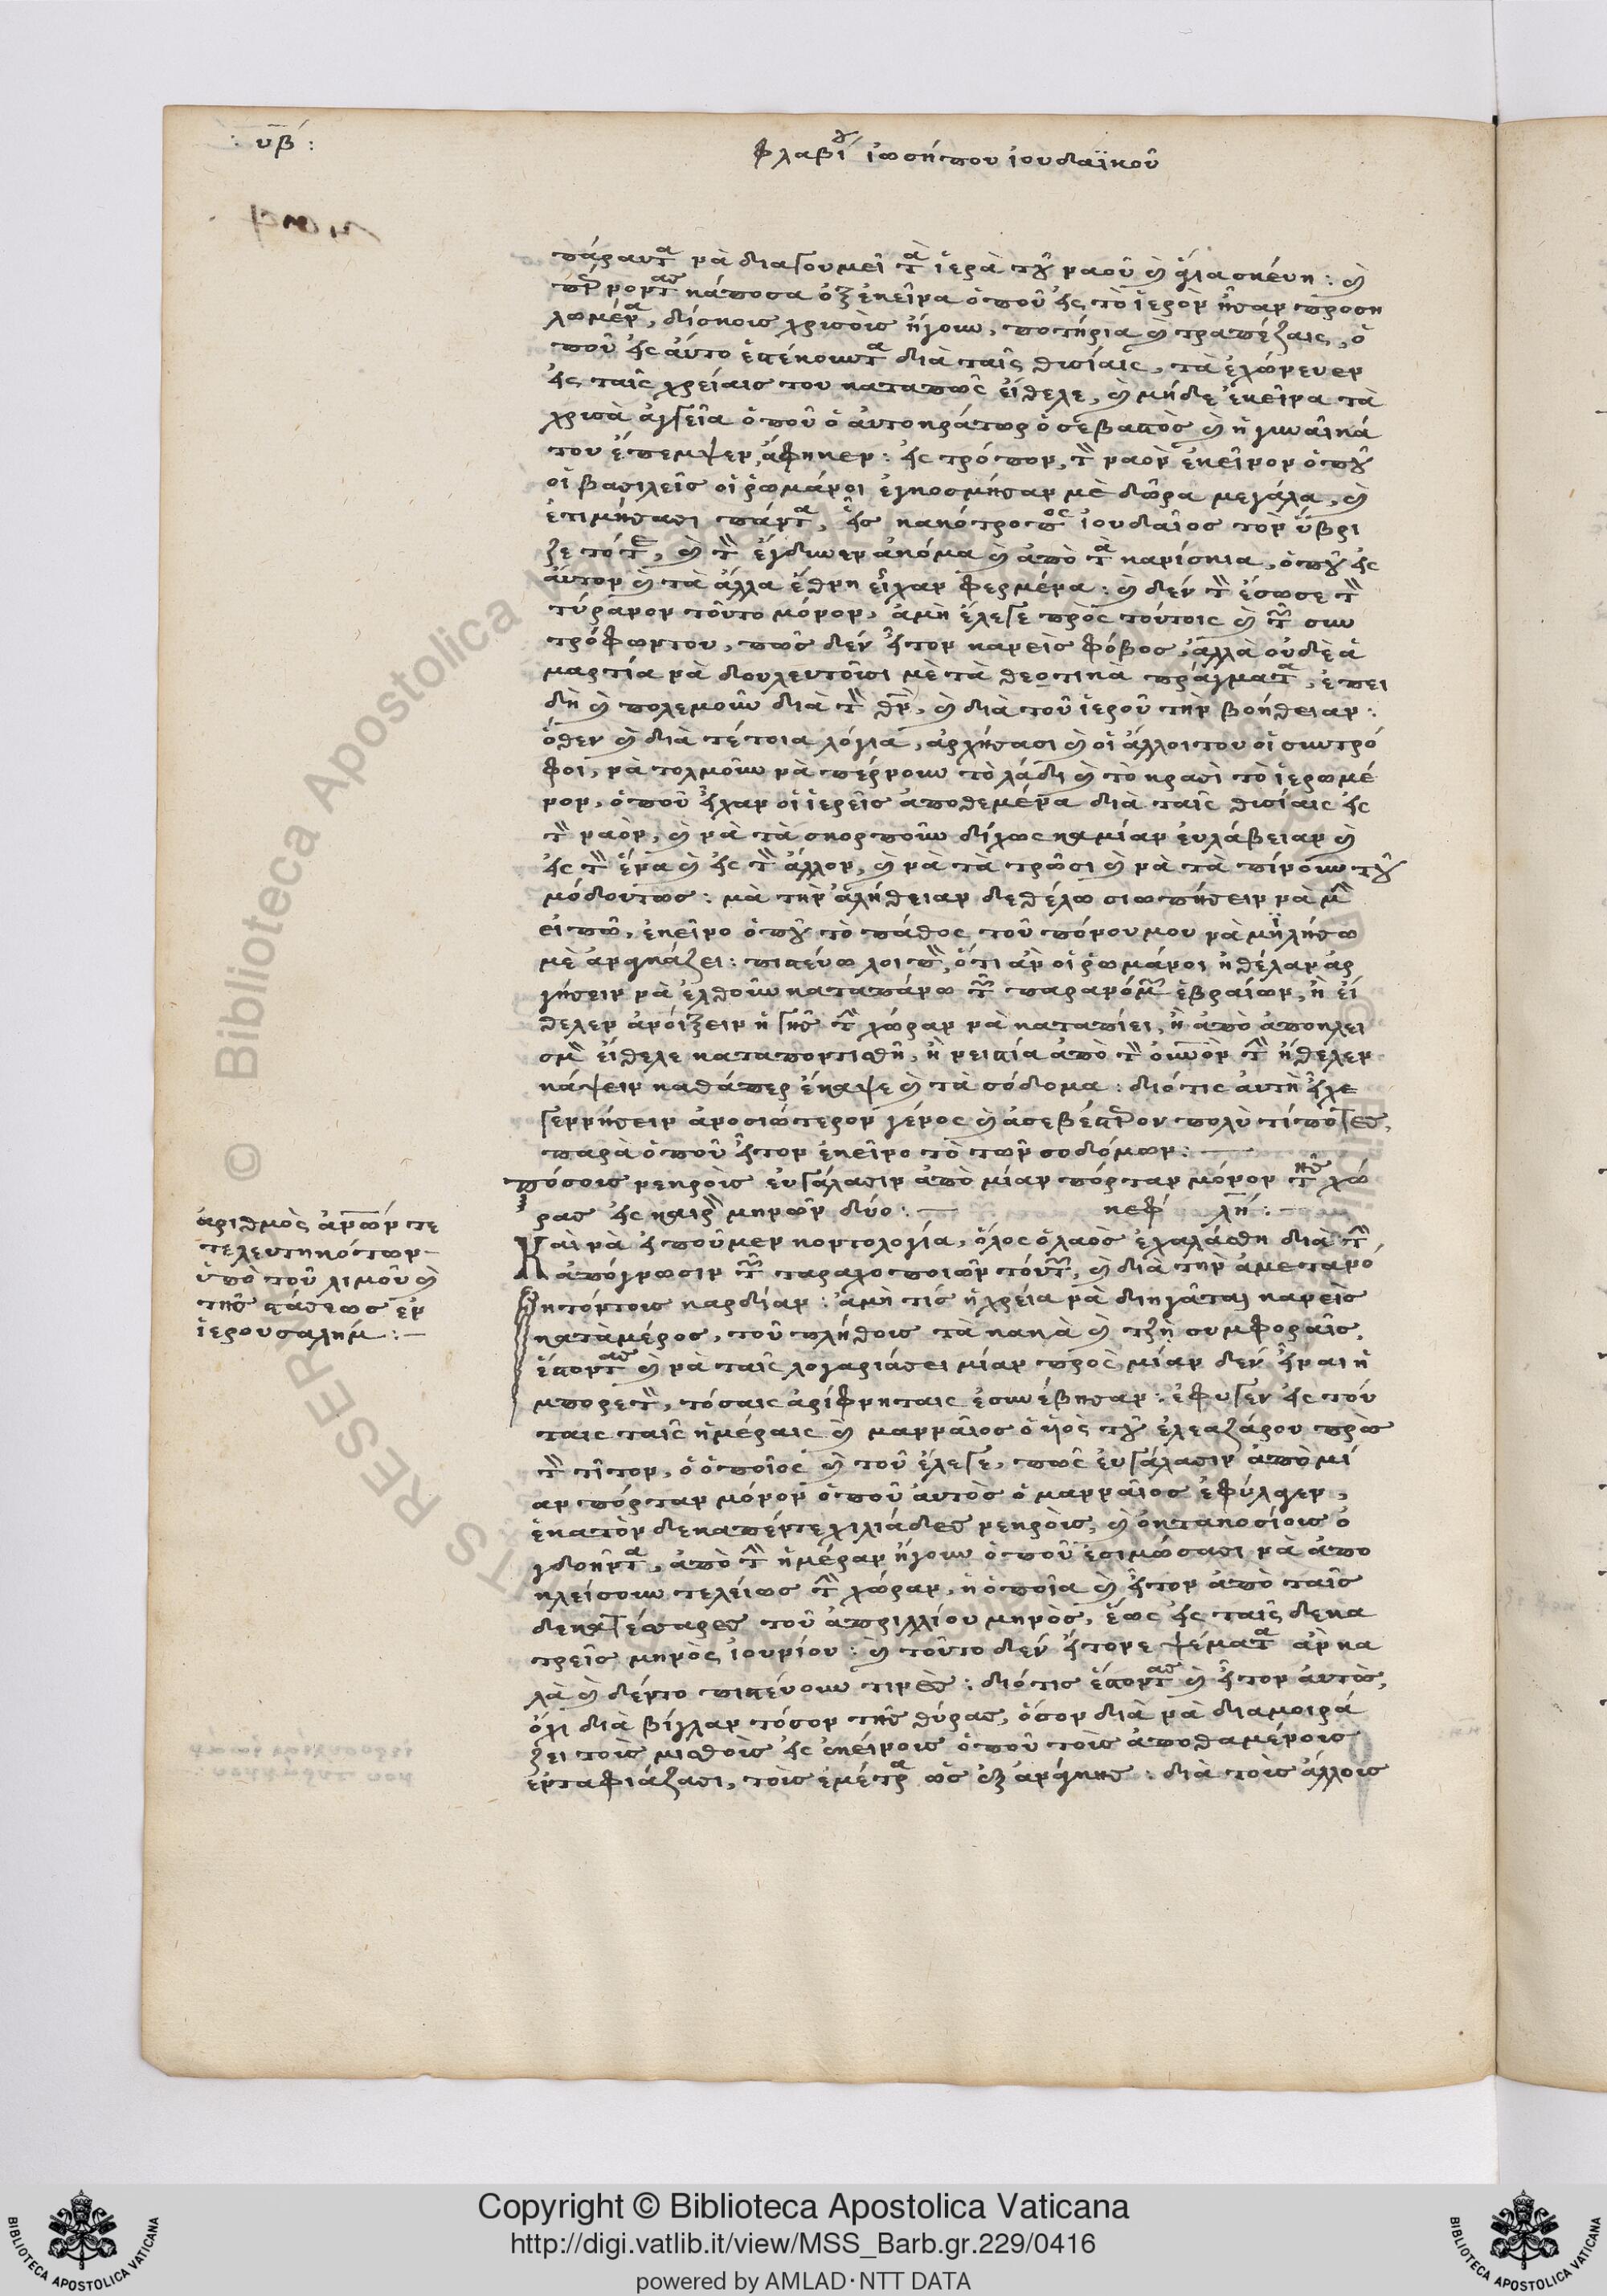 : υβ :
φλαβίου ἰωσήπου ἰουδαϊκοῦ
πάραυτα νὰ διαγουμεῖ τὰ ἱερὰ τοῦ ναοῦ καὶ ἁγία σκεύη : καὶ
πέρνοντας κάποσα ὀξ ἐκεῖνα ὁποῦ εἰς τὸ ἱερὸν ἦσαν προση
λωμένα, δίσκοις χρισοῖς ἤγουν, ποτήρια καὶ τραπέζαις, ὁ
ποῦ εἰς αὐτὸ ἐστέκουντα διὰ ταῖς θισίαις, τὰ ἐχώνευεν
εἰς ταῖς χρείαις του καταπῶς εἴθελε, καὶ μήδε ἐκεῖνα τὰ
χρισὰ ἀγγεῖα ὁποῦ ὁ αὐτοκράτωρ ὁ σεβαστὸς καὶ ἡ γυναῖκά
του ἔπεμψεν, ἄφηκεν : εἰς τρόπον, τὸν ναὸν ἐκεῖνον ὁποῦ
οἱ βασιλεῖς οἱ ῥωμάνοι ἐγκοσμήσαν μὲ δῶρα μεγάλα, καὶ
ἐτιμήσασι πάντα, εἷς κακότροπος ἰουδαῖος τὸν ὕβρι
ζε τότε, καὶ τὸν ἔγδυνεν ἀκόμα καὶ ἀπὸ τὰ κανίσκια, ὁποῦ εἰς
αὐτὸν καὶ τὰ ἄλλα ἔθνη εἶχαν φερμένα : καὶ δέν τὸν ἔσωσε τὸν
τύρανον τοῦτο μόνον, ἀμὴ ἔλεγε πρὸς τούτοις καὶ τῶν συν
τρόφωντου, πῶς δέν ἦτον κανεὶς φόβος, ἀλλὰ οὐδὲ ἁ
μαρτία νὰ δουλευτοῦσι μὲ τὰ θεοτικὰ πράγματα, ἐπει
δὴ καὶ πολεμοῦν διὰ τὸν θεὸν, καὶ διὰ τοῦ ἱεροῦ τὴν βοήθειαν :
ὅθεν καὶ διὰ τέτοια λόγια, ἀρχήσασι καὶ οἱ ἄλλοι του οἱ συντρό
φοι, νὰ τολμοῦν νὰ πέρνουν τὸ λάδι καὶ τὸ κρασὶ τὸ ἱερωμέ
νον, ὁποῦ εἶχαν οἱ ἱερεῖς ἀποθεμένα διὰ ταῖς θισίαις εἰς
τὸν ναὸν, καὶ νὰ τὰ σκορποῦν δίχως καμίαν εὐλάβειαν καὶ
εἰς τὸν ἕνα καὶ εἰς τὸν ἄλλον, καὶ νὰ τὰ τρῶσι καὶ νὰ τὰ πίνουν τοῦ
μόδουτως : μὰ τὴν ἀλήθειαν δεθέλω σιωπήσειν νὰ μὴν
εἰπῶ, ἐκεῖνο ὁποῦ τὸ πάθος τοῦ πόνου μου νὰ μηλήσω
μὲ ἀναγκάζει : πιστεύω λοιπὸν, ὅτι ἀν οἱ ῥωμάνοι ἠθέλαν ἀρ
γήσειν νὰ ἐλθοῦν καταπάνω τῶν παρανόμων ἑβραίων, ἢ εἴ
θελεν ἀνοίξειν ἡ γῆς τὴν χώραν νὰ καταπίει, ἢ ἀπὸ ἀποκλει
σμὸν εἴθελε καταποντισθῆ, ἢ νειστία ἀπὸ τὸν οὐρανὸν τὴν ἤθελεν
κάψειν καθάπερ ἔκαψε καὶ τὰ σόδομα : διότις αὐτὴ εἶχε
γεννήσειν ἀνοσιώτερον γένος καὶ ἀσεβέστερον πολὺ τίποτες,
παρὰ ὁποῦ ἦτον ἐκεῖνο τὸ τῶν σοδόμων :
πόσοις νεκροῖς εὐγάλασιν ἀπὸ μίαν πόρταν μόνον τῆς χώ
ρας εἰς καιρὸν μηνῶν δύο : κεφ λη :
ἀριθμὸς ἁπάντων τε
τελευτηκότων
ὑπὸ τοῦ λιμοῦ καὶ
τῆς στάσεως ἐν
ἱερουσαλήμ :
Καὶ νὰ εἰποῦμεν κοντολογία, ὅλος ὁ λαὸς ἐχαλάσθη διὰ τὴν
ἀπόγνωσιν τῶν ταραχοποιῶν τούτων, καὶ διὰ τὴν ἀμετανό
ητόντοις καρδίαν : ἀμὴ τίς ἡ χρεία νὰ διηγᾶται κανεὶς
κατὰ μέρος, τοῦ πλήθοις τὰ κακὰ καὶ τζὴ συμφοραῖς,
ἔστοντας καὶ νὰ ταῖς λογαριάσει μίαν πρὸς μίαν δεν εἶναι ἡ
μπορετὸν, τόσαις ἀρίφνηταις ἐσυνέβησαν : ἔφυγεν εἰς τού
ταις ταῖς ἡμέραις καὶ μανναῖος ὁ ὑιὸς τοῦ ἐλεαζάρου πρὸς
τὸν τῖτον, ὁ ὁποῖος καὶ τοῦ ἔλεγε, πῶς εὐγάλασιν ἀπὸ μί
αν πόρταν μόνον ὁποῦ αὐτὸς ὁ μανναῖος ἐφύλαγεν,
ἑκατὸν δεκαπέντε χιλιάδες νεκροῖς, καὶ ὀκτακοσίοις ὀ
γδοῆντα, ἀπὸ τὴν ἡμέραν ἤγουν ὁποῦ ἐσιμώσασι νὰ ἀπο
κλείσουν τελείως τὴν χώραν, ἡ ὁποῖα καὶ ἦτον ἀπὸ ταῖς
δεκατέσσαρες τοῦ ἀπριλλίου μηνὸς, ἕως εἰς ταῖς δεκα
τρεῖς μηνὸς ἰουνίου : καὶ τοῦτο δέν ἦτονε ψέματα ἀν κα
λὰ καὶ δέντο πιστεύουν τινὲς : διότις ἔστοντας καὶ ἦτον αὐτὸς,
ὄχι διὰ βίγλαν τόσον τῆς θύρας, ὅσον διὰ νὰ διαμοιρά
ζει τοῖς μισθοῖς εἰς ἐκείνοις ὁποῦ τοῖς ἀποθαμένοις
ἐνταφιάζασι, τοῖς ἐμέτρα ὡς ἐξ ἀνάγκης : διὰ τοῖς ἄλλοις
Copyright © Biblioteca Apostolica Vaticana
http://digi.vatlib.it/view/MSS_Barb.gr.229/0416
powered by AMLAD·NTT DATA